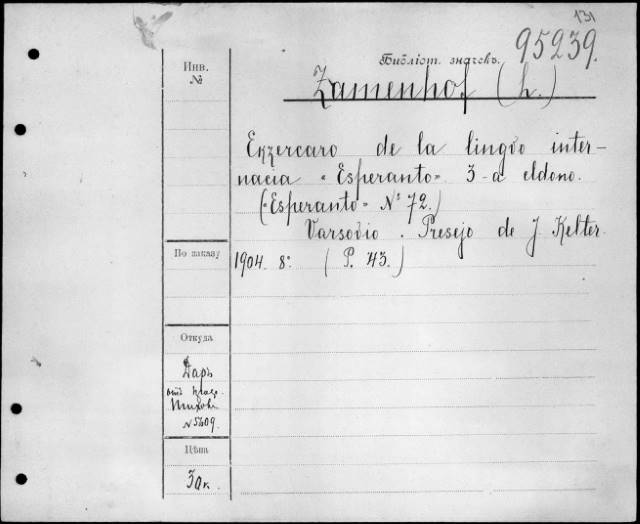 131
95239.
Библіот. значекъ.
Инв.
№
Zamenhof (L.)
Ekzercaro de la lingvo inter-
nacia "Esperanto" 3-a eldono.
("Esperanto" № 72.)
Varsovio. Presejo de J. Kelter.
По заказу
1904. 8° (P. 43.)
Откуда
Даръ
отъ
№ 5409.
Цѣна
30 к.